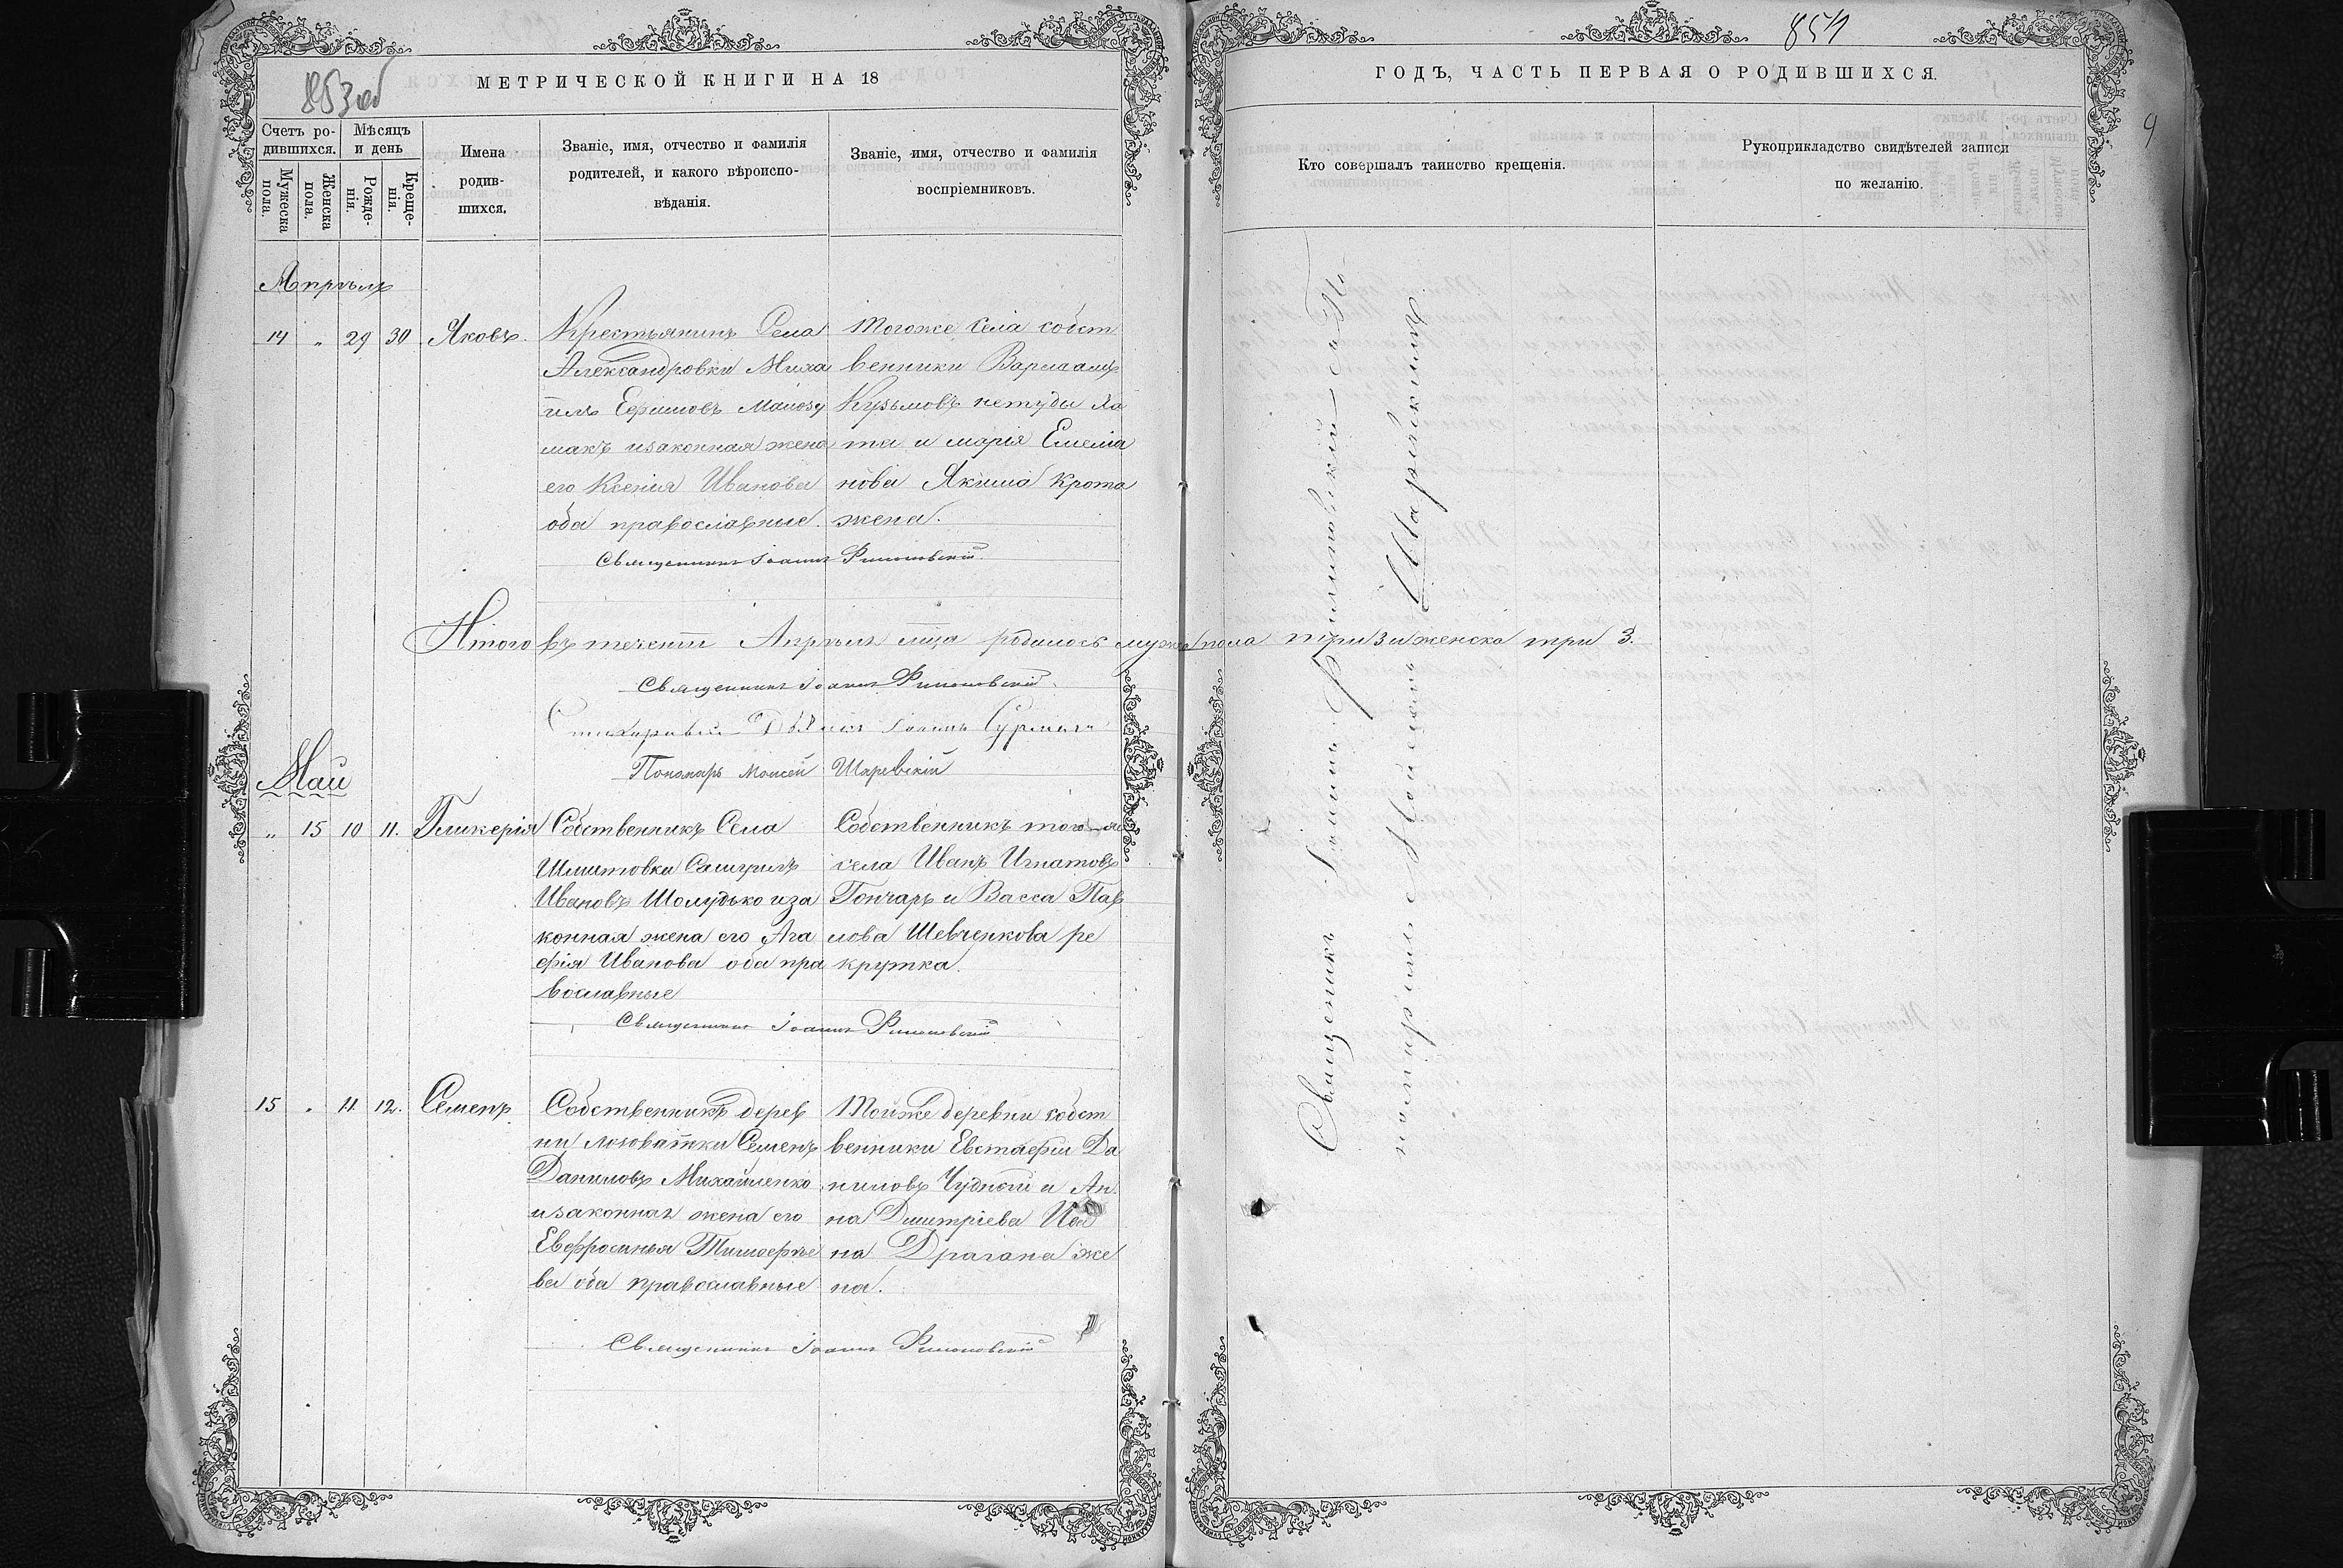 853об
МЕТРИЧЕСКОЙ КНИГИ НА 18
Счетъ ро-
дившихся.
Мужеска
пола.
Женска
пола.
Мѣсяцъ
и день
Рожде-
нія.
Креще-
нія.
Имена
родив-
шихся.
Званіе, имя, отчество и фамилія
родителей, и какого вѣроиспо-
вѣданія.
Званіе, имя, отчество и фамилія
воспріемниковъ.
Апрѣль
14 „ 29 30 Яковъ.
Крестьянинъ Села
Александровки Миха
илъ Ефимовъ
макъ изаконная жена
его Ксенія Иванова
оба православные.
Тогоже села собст
венники Варлаамъ
Кузьмовъ Ха
та и марія Емелiа
нова Якима Крота
жена.
Священникъ Іоаннъ
Итого въ теченіи Апрѣля мца родилось муже пола три 3 и женска три 3.
Священникъ Іоаннъ
Іоаннъ
Пономарь Моисей Шаревскій
Май
„ 15 10 11. Гликерія
Собственникъ Села
Шмитовки
Ивановъ Шолудько иза
конная жена его Ага
фія Иванова оба пра
вославные
Собственникъ того-же
села Иванъ Игнатовъ
Гончаръ и Васса Пав
лова Шевченкова ре
крутка.
Священникъ Іоаннъ
15 „ 11 12. Семенъ
Собственникъ дерев
ни Лозоватки Семенъ
Даниловъ Михайленко
изаконная жена его
Евфросинья Тимофѣе
ва оба православные
Тойже деревни собст
венники Евстафій Да
ниловъ Чудной и Ан
на Димитріева
на Драгана же
на.
Священникъ Іоаннъ
854
9
ГОДЪ, ЧАСТЬ ПЕРВАЯ О РОДИВШИХСЯ.
Кто совершалъ таинство крещенія.
Рукоприкладство свидѣтелей записи
по желанію.
Священникъ Іоаннъ съ По-
номаремъ Моисеемъ Шаревскимъ